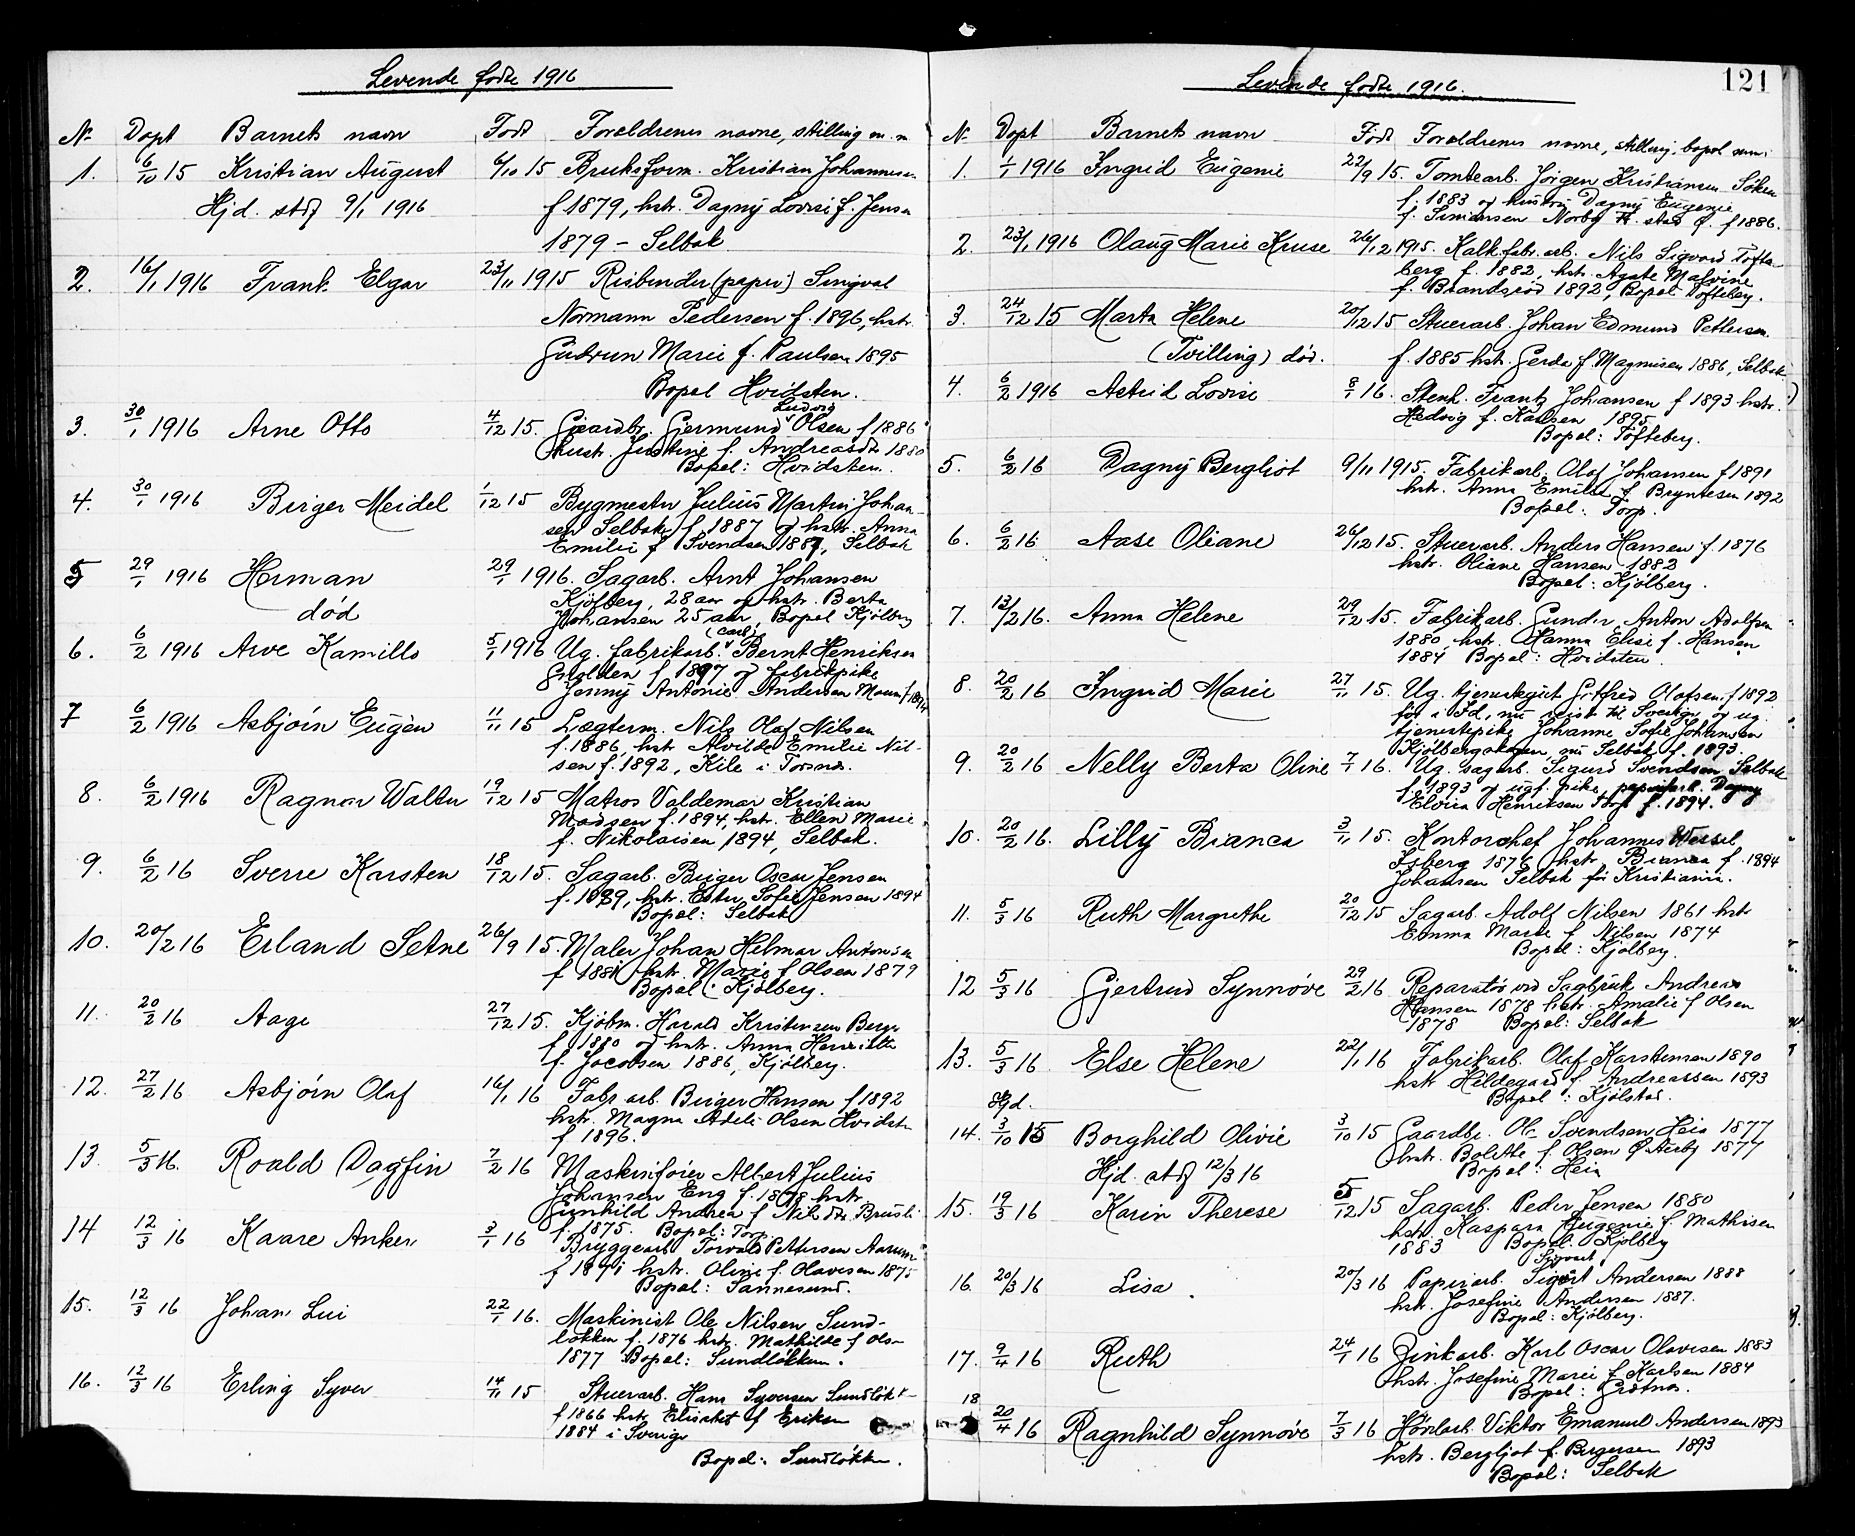 Levende fødte 1916
Nr Døpt Barnets navn Født Foreldrenes navne, stilling
1. 6/10 15 Kristian August 6/10 15 Bruksform. Kristian Johannesen
Hjd. stdf 9/1 1916 f 1879, hstr. Dagny Lovise f. Jensen
1879 - Selbak
2. 16/1 1916 Frank Elgar 23/11 1915 Risbinder (papir) Singval
Normann Pedersen f. 1896, hstr.
Gudrun Marie f. Paulsen 1895
Bopel Hvidsten.
Ludvig
3. 30/1 1916 Arne Otto 4/12 15. Gaardbr. Gjermund Olsen f 1886
hustr. Justine f. Andreasdtr 1880
Bopel: Hvidsten.
4. 30/1 1916 Birger Meidel 1/12 15 Bygmester Julius Martin Johan
sen Selbak f. 1887 og hstr. Anna
Emilie f Svendsen 1887, Selbak
5 29/1 1916 Herman 29/1 1916. Sagarb. Arnt Johansen
død Kjølberg, 28 aar og hstr. Berta
Johansen 25 aar, Bopel Kjølberg
(Carl)
6. 6/2 1916 Arve Kamillo 5/1 1916 Ug. fabrikarb. Bernt Henriksen
f 1897 og fabrikpike
Jenny Antonie Andersen Moum f 1894
7 6/2 1916 Asbjørn Eugen 11/11 15 Lægterm. Nils Olaf Nilsen
f. 1886, hstr Alvilde Emilie Nil-
sen f. 1892, Kile i Torsnes.
8. 6/2 1916 Ragnar Walter 19/12 15 Matros Valdemar Kristian
Madsen f. 1894, hstr. Ellen Marie
f. Nikolaisen 1894, Selbak.
9. 6/2 16 Sverre Karsten 18/12 15. Sagarb. Birger Oscar Jensen
f. 1889, hstr. Ester Sofie Jensen 1894
Bopel: Selbak
10. 20/2 16 Erland Setne 26/9 15. Maler Johan Hilmar Antonsen
f 1881 hstr. Marie f Olsen 1879
Bopel: Kjølberg.
11. 20/2 16 Aage 27/12 15. Kjøbm. Harald Kristensen Berge
f 1880 og hstr. Anna Henriette
f. Jacobsen 1886, Kjølberg.
12. 27/2 16 Asbjørn Olaf 16/1 16 Fabr arb. Birger Hansen f 1892
hstr. Magna Adele Olsen Hvidsten
f 1896.
13. 5/3 16. Roald Dagfin 7/2 16 Maskinfører Albert Julius
Johansen Eng f. 1878 hstr.
Gunhild Andrea f Nilsdtr
f. 1875. Bopel: Torp
14 12/3 16 Kaare Anker 3/1 16 Bryggearb Torvald Pettersen Aarum
f 1871 hstr. Oline f. Olavesen 1875
Bopel: Sannesund.
15. 12/3 16 Johan Lui 22/1 16. Maskinist Ole Nilsen Sund-
løkken f. 1876 hstr. Mathilde f Olsen
1877 Bopel: Sundløkken.
16. 12/3 16 Erling Syver 14/11 15 Stuerarb. Hans Syversen Sundløkk-
f 1866 hstr. Elisabet f Eriksen
1884 i Sverige
Bopel: Sundløkken.
121
Levende fødte 1916.
Nr. Døpt Barnets navn Født Foreldrenes navne, stilling, bopel
1. 1/1 1916 Ingrid Eugenie 22/9 15. Tomtearb. Jørgen Kristiansen
f. 1883 og hustru Dagny Eugenie
f. Simensen Norby f 1886.
2. 23/1 1916 Olaug Marie Kruse 26/12 1915. Kalkfabr. arb. Nils Sigvard Tofte
berg f. 1882, hstr. Agate Malvine
f. Brandsrød 1892, Bopel Tofteberg.
3. 24/12 15 Marta Helene 20/12 15 Stuerarb. Johan Edmund Pettersen
(Tvilling) død. f. 1885 hstr. Gerda f Magnusen 1886, Selbak
4. 6/2 1916 Astrid Lovise 8/1 16. Stenh. Frantz Johansen f 1893 hstr.
Hedvig f. Karlsen 1895
Bopel: Tofteberg.
5. 6/2 16 Dagny Bergliot 9/11 1915. Fabrikarb. Olaf Johansen f 1891
hstr. Anna Emilie f Bryntesen 1892
Bopel: Torp.
6. 6/2 16 Aase Oliane 26/12 15. Stuerarb. Anders Hansen f. 1876
hstr. Oliane Hansen 1883
Bopel: Kjølberg.
7. 13/2 16. Anna Helene 29/12 15. Fabrikarb. Gunder Anton Adolfsen
1880, hstr. Hanna Elise f. Hansen
1884 Bopel: Hvidsten
8. 20/2 16 Ingrid Marie 27/11 15. Ug. tjenestegut Gotfred Olafsen f 1892
før i Id, nu reist til Sverige, og ug.
tjenestepike Johanne Sofie Johansen
Kjølbergskogen, nu Selbak f. 1893.
9. 20/2 16 Nelly Berta Oline 7/1 16. Ug. sagarb. Sigurd Svendsen Selbak
f. 1893 og ugf. pike, papirfark. Dagny
Elvira Henriksen Torp f. 1894.
10. 20/2 16. Lilly Bianca 3/11 15. Kontorchef Johannes Wessel
Isberg 1876 hstr. Bianca f. 1894
Johansen Selbak før Kristiania.
11. 5/3 16 Ruth Margrethe 20/12 15 Sagarb. Adolf Nilsen 1861 hstr
Emma Marie f Nilsen 1874
Bopel: Kjølberg.
12 5/3 16 Gjertrud Synnøve 29/2 16 Reparatør ved Sagbruk Andreas
Hansen 1878 hstr. Amalie f Olsen
1878 Bopel: Selbak
13. 5/3 16 Else Helene 22/1 16 Fabrikarb. Olaf Karstensen 1890
hstr Hildegard f. Andreassen 1893
Bopel: Kjølstad.
Hjd.
14. 3/10 15 Borghild Olivie 3/10 15 Gaardbr. Ole Svendsen Heia 1877
Hjd. stdf 12/3 16 hstr. Bolette f Olsen Østerby 1877
Bopel: Heia
15. 19/3 16 Karin Therese 5/12 15 Sagarb. Peder Jensen 1880
hstr. Kaspara Eugenie f Mathisen
1883 Bopel. Kjølberg
Sigvart
16. 20/3 16 Lisa 20/3 16 Papirarb. Sigurt Andersen 1888
hstr. Josefine Andersen 1887.
Bopel: Kjølberg.
17. 9/4 16 Ruth 24/1 16 Zinkarb. Karl Oscar Olavesen 1883
hstr. Josefine Marie f Karlsen 1884
Bopel:
18 20/4 16 Ragnhild Synnøve 7/3 16 Viktor Emanuel Andersen 1893
hstr. Bergljot f. Birgersen 1893
Bopel: Selbak